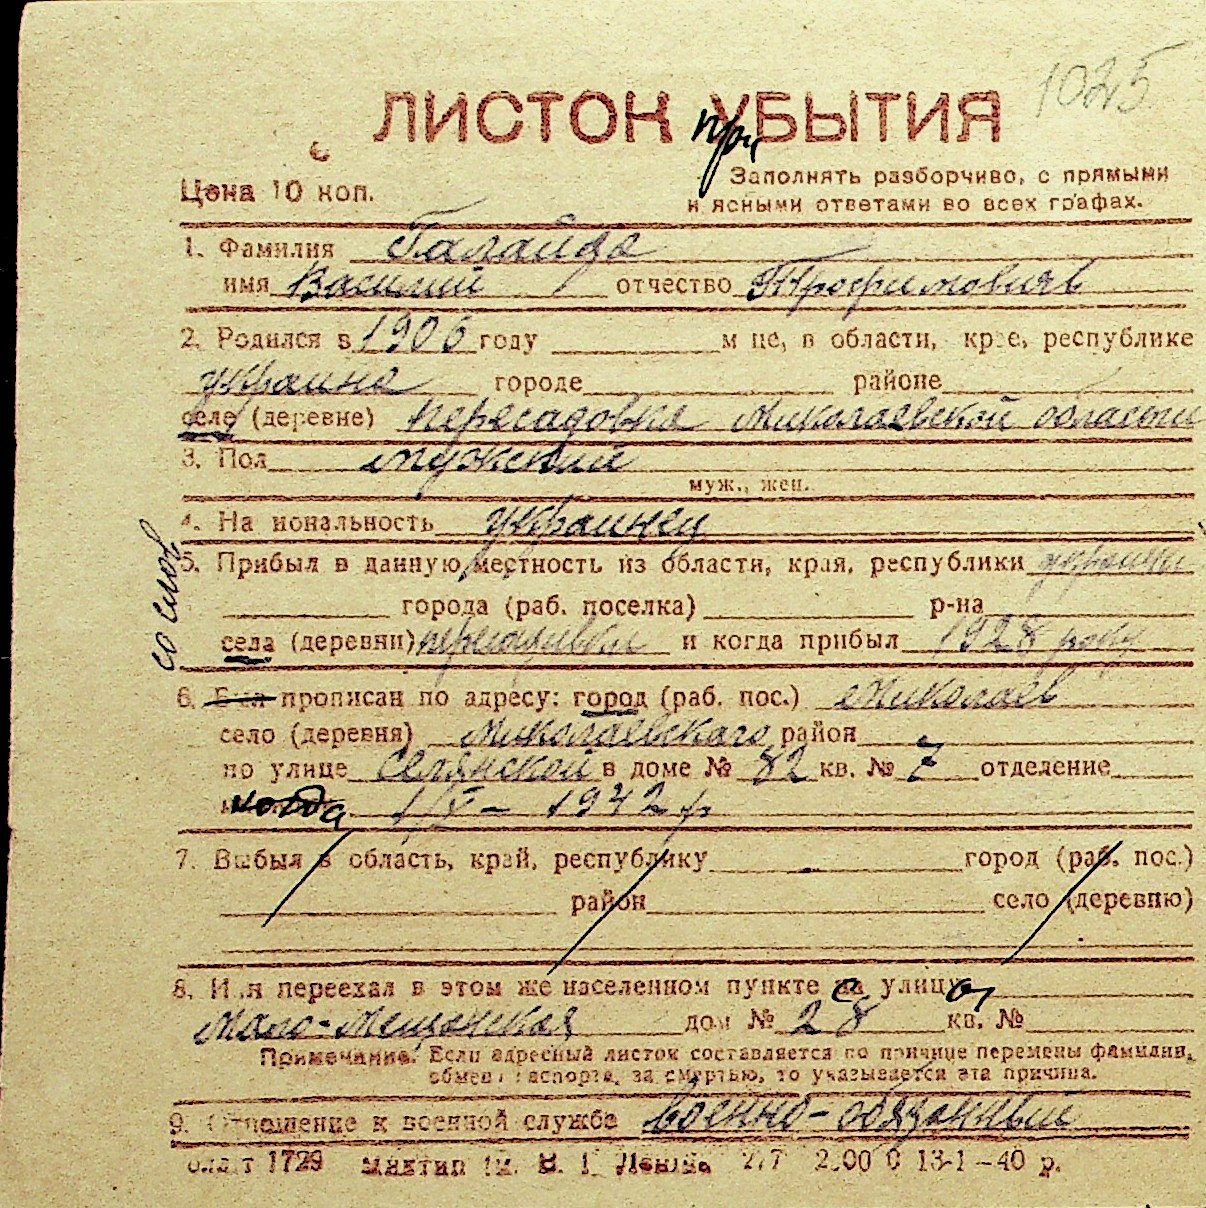 1025
ЛИСТОК УБЫТИЯ
при
Цена 10 коп.
Заполнять разборчиво, с прямыми
и ясными ответами во всех графах.
1. Фамилия Галайда
имя Василий отчество Трофимовичъ
2. Родился в 1906 году м це, в области, крае, республике
украина городе районе
селе (деревне) пересадовка Николаевской области
3. Пол мужский
муж., жен.
4. На иональность украинец
со слов
5. Прибыл в данную местность из области, края, республики украины
города (раб. поселка) р-на
села (деревни) пересадовки и когда прибыл 1928 году
6. Был прописан по адресу: город (раб. пос.) Николаев
село (деревня) Николаевского район
по улице Селянской в доме № 82 кв. № 7 отделение
когда 1/V - 1942 г
7. Выбыл в область, край, республику город (раб. пос.)
район село (деревню)
8. Или переехал в этом же населенном пункте на улицу
с ы
Мало-Мещанская дом № 28 кв. №
Примечание. Если адресный листок составляется по причине перемены фамилии,
обмен паспорта, за смертью, то указывается эта причина.
9. Отношение к военной службе военно-обязанный
1729 им. В. Ленина 2,00 0 13-1-40 р.